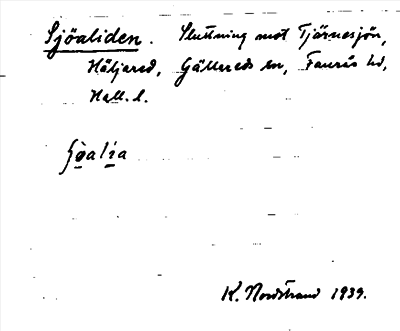 Sjöaliden. Sluttning mot Tjärnesjön,
Häljared, Gällareds sn, Faurås hd,
Hall. l.
ʃö̱ali̱a
K. Nordstrand 1939.